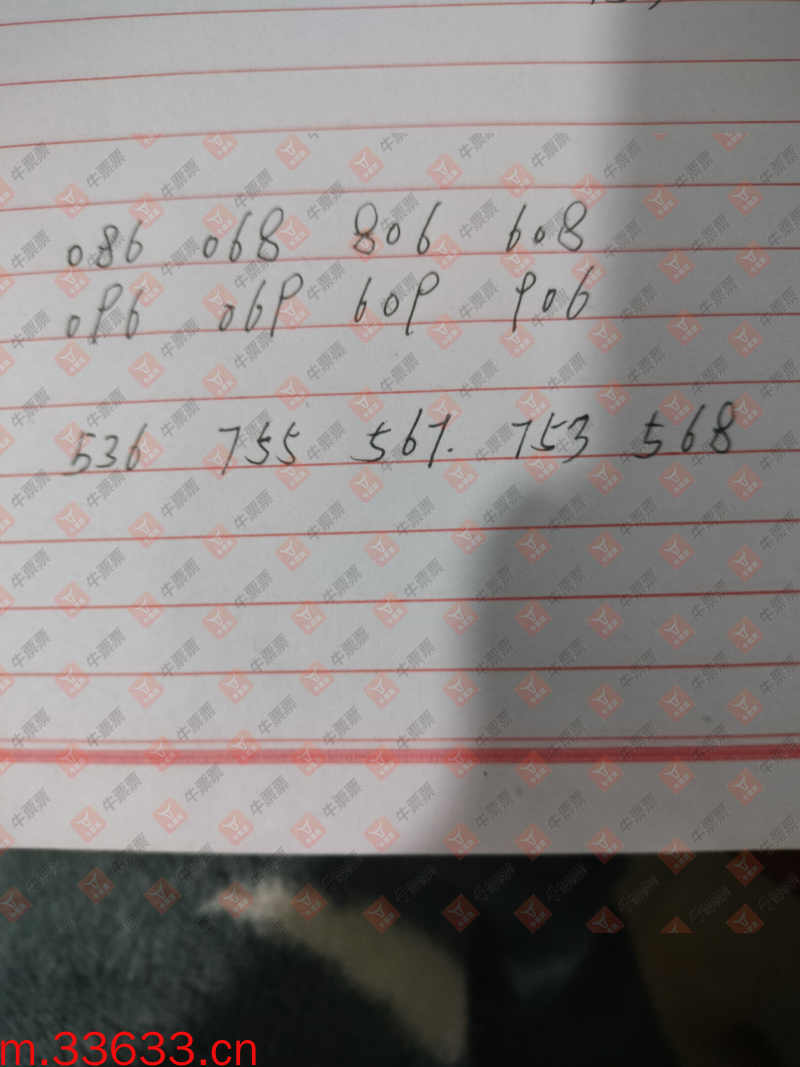 086 068 806 608
096 069 609 906
536 755 567. 753 568
m.33633.cn
牛票票